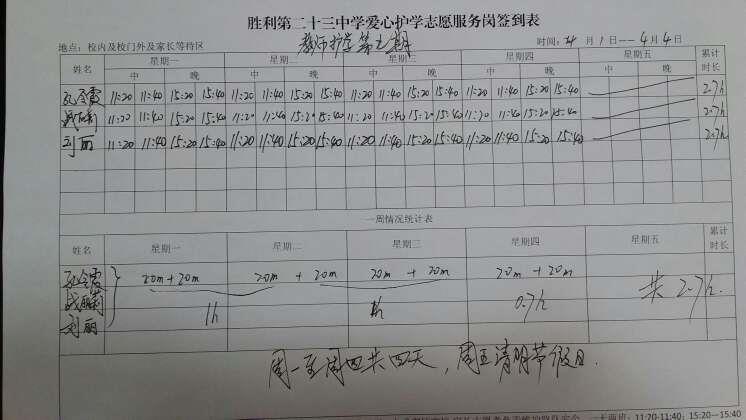 胜利第二十三中学爱心护学志愿服务岗签到表
教师护学第七期
地点：校内及校门外及家长等待区 时间：4月1日——4月4日
姓名 星期一 星期二 星期三 星期四 星期五 累计时长
中 晚 中 晚 中 晚 中 晚 中 晚
11:20 11:40 15:20 15:40 11:20 11:40 15:20 15:40 11:20 11:40 15:20 15:40 11:20 11:40 15:20 15:40 2.7h
11:20 11:40 15:20 15:40 11:20 11:40 15:20 15:40 11:20 11:40 15:20 15:40 11:20 11:40 15:20 15:40 2.7h
刘丽 11:20 11:40 15:20 15:40 11:20 11:40 15:20 15:40 11:20 11:40 15:20 15:40 11:20 11:40 15:20 15:40 2.7h
一周情况统计表
姓名 星期一 星期二 星期三 星期四 星期五 累计时长
20m+20m 20m + 20m 20m + 20m 20m + 20m 共2.7h.
1h 1h 0.7h
刘丽
周一至周四共四天，周五清明节假日.
11:20-11:40；15:20—15:40